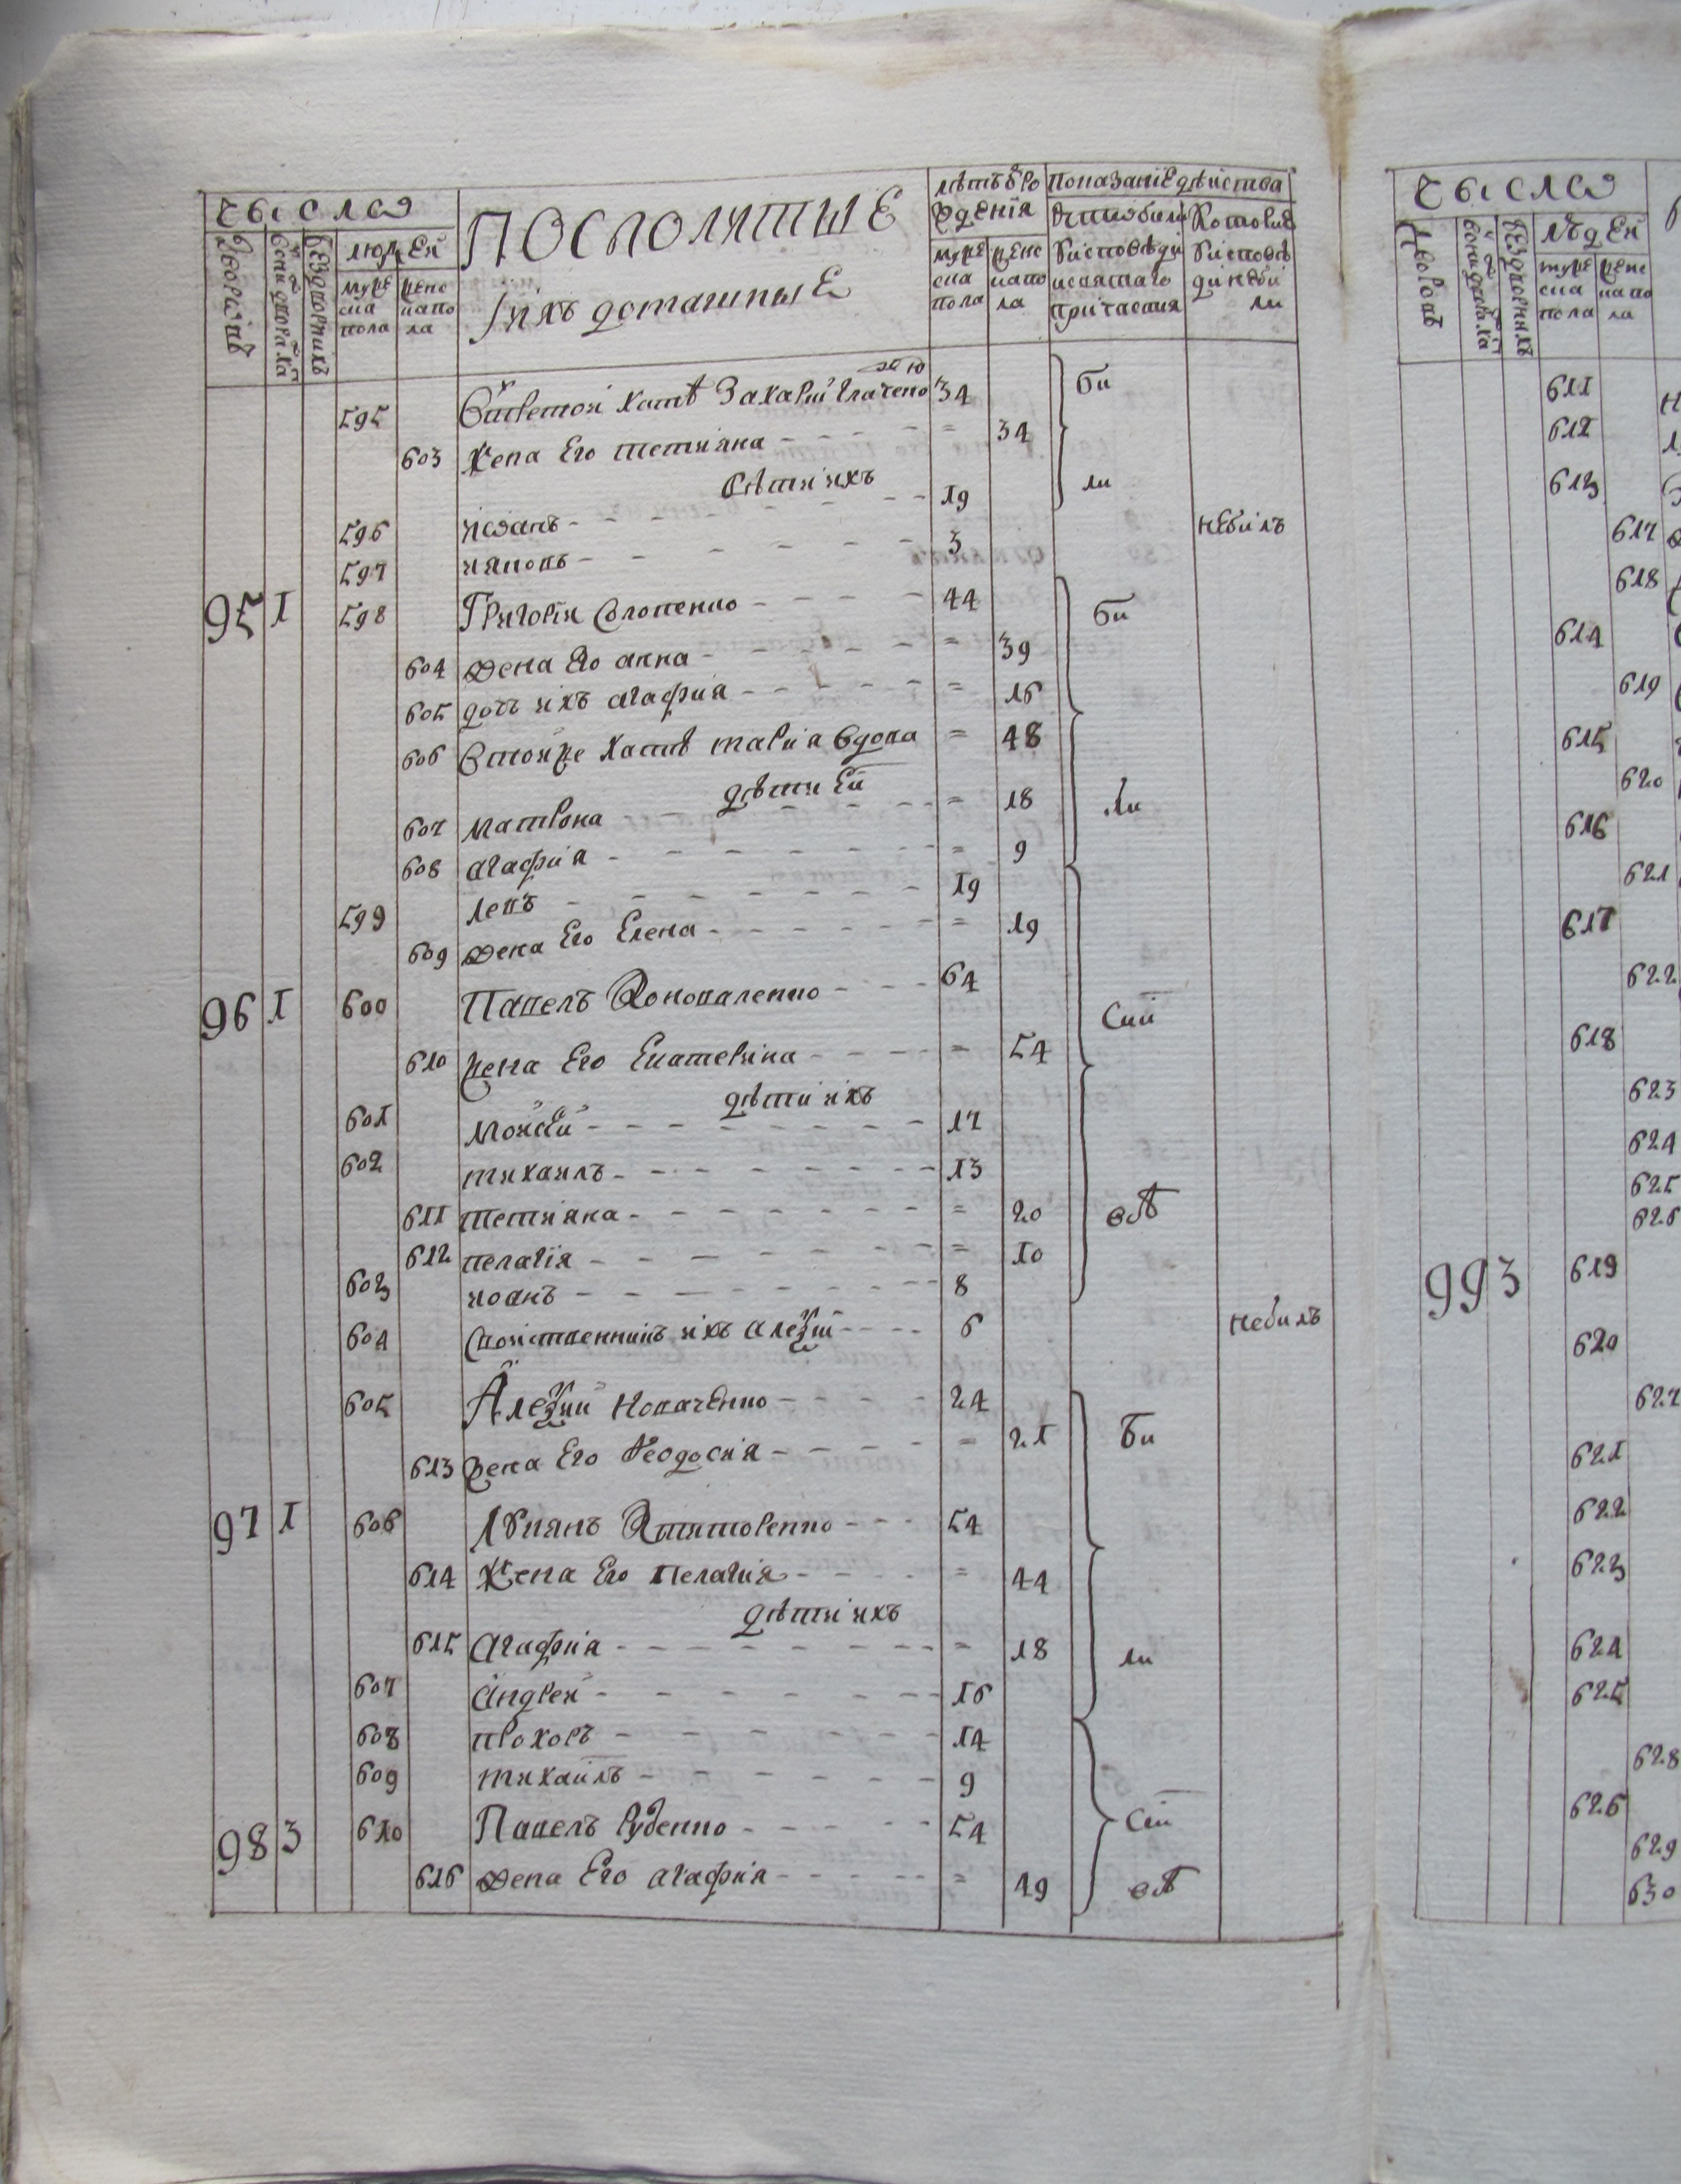 Числω
ПОСПОЛИТЫЕ
Їихъ домашныЕ
людЕй
муже
ска
пола
женс
капо
ла
лѣтъ ѿро
жденїя
муже
ска
пола
женс
капо
ла
ПоказанїЕ дѣиства
исповѣди
исвятаго
притчастия
Которие
исповѣ
ди неби
ли
595 Втретой хатѣ Захарий Ткаченко 34 би
603 Жена Его тетияна = 34
Дѣти ихъ ли
596 иѡанъ 19 небилъ
597 иаковъ 3
95 1 598 Григорїи Солопенко 44 би
604 жена Его анна = 39
605 дочъ ихъ агафия = 16
606 Втойже хатѣ мария вдова = 48
дѣти Ей
607 матрона = 18 ли
608 агафия = 9
599 левъ 19
609 жена Его Елена = 19
96 1 600 Павелъ Коноваленко 64 Сии
610 жена Его Екатерина = 54
дѣти ихъ
601 Моисей 17
602 михаилъ 13
611 тетияна = 20 всѣ
612 пелагїя = 10
603 иоанъ 8
604 Своиственникъ ихъ алеѯий 6 небилъ
605 Алеѯий Новаченко 24 Би
613 жена Его Ѳеодосия = 21
97 1 606 Лукянъ Хтиторенко 54
614 Жена Его Пелагия = 44
дѣти ихъ
615 Агафия = 18 ли
607 андрей 16
608 прохоръ 14
609 михаилъ 9
98 3 610 Павелъ Руденко 54 Сии
616 жена Его агафия = 49 всѣ
Числω
Дворовъ
людЕй
муже
ска
пола
женс
капо
ла
611
612
613
617
618
614
619
615
620
616
621
617
622
618
623
624
625
626
99 3 619
620
627
621
622
623
624
625
628
626
629
630